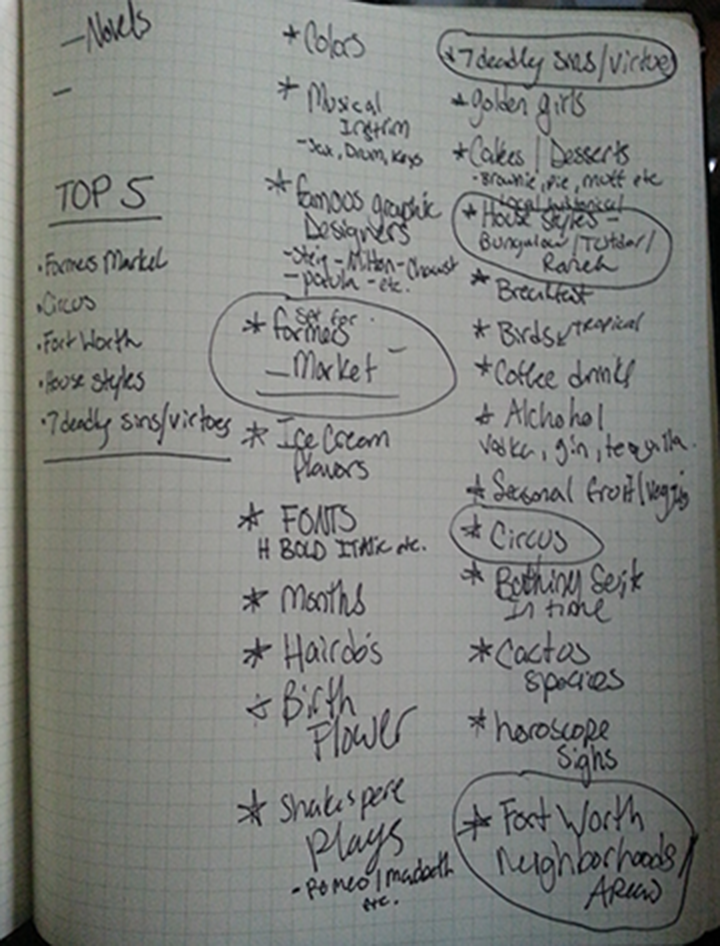 —Novels
—
TOP 5
•Farmers Market
•Circus
•Fort Worth
•House styles
•7deadly sins/virtues
*Colors
*Musical
Instrm
-Sax, Drum, Keys
*famous graphic
Designers
-Steig -Milton-Chwast
-paula -etc.
Set for
*farmers
—Market
*Ice Cream
flavors
*FONTS
H BOLD ITALIC etc.
*Months
*Hairdo's
*Birth
Flower
*Shakespere
Plays
-Romeo/macbeth
etc.
*7deadly sins/virtues
*golden girls
*Cakes/Desserts
-Brownie, pie, muff etc
local historical
*House styles -
Bungalow/Tutdor/
Ranch
*Breakfast
*Birds tropical
*Coffee drinks
*Alchohol
Vodka, gin, tequilla.
*Seasonal fruit/veggies
*Circus
*Bathing Suit
In time
*Cactus
species
*horoscope
Sighs
*Fort Worth
Neighborhoods/
Areas